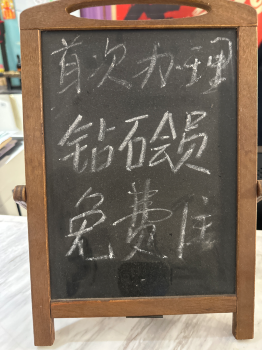 首次办理
钻石会员
免费住